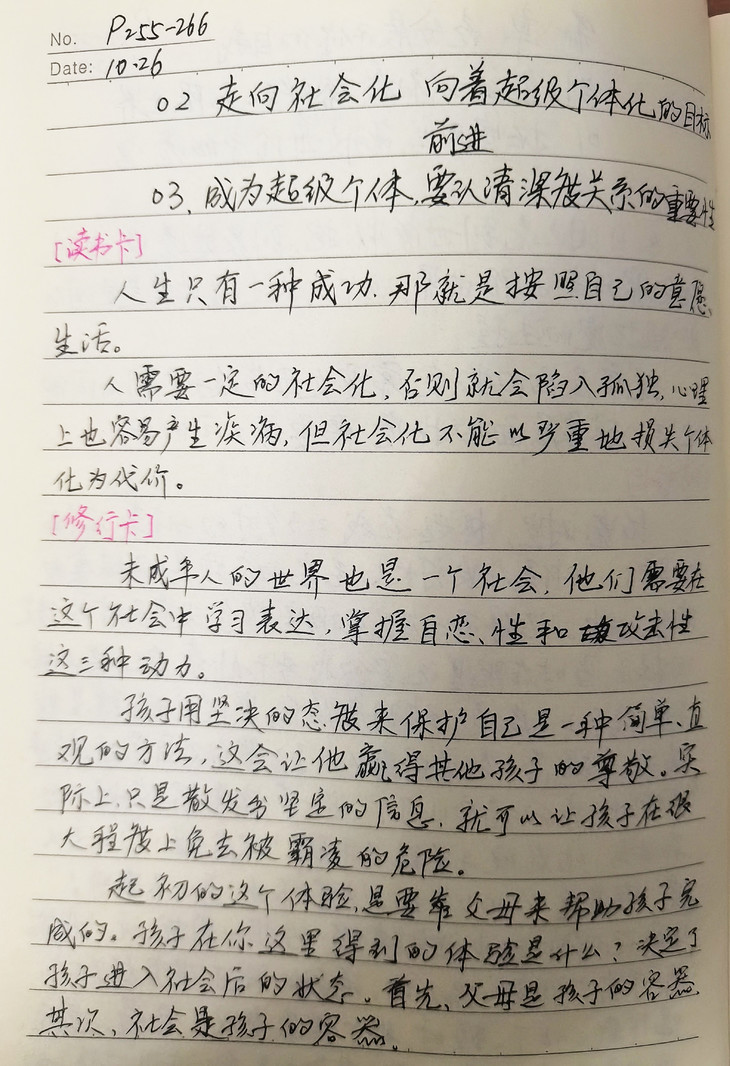 No. P255-266
Date: 10.26
02 走向社会化 向着超级个体化的目标
前进
03、成为超级个体,要认清深度关系的重要性
[读书卡]
人生只有一种成功,那就是按照自己的意愿
生活。
人需要一定的社会化,否则就会陷入孤独,心理
上也容易产生疾病,但社会化不能以严重地损失个体
化为代价。
[修行卡]
未成年人的世界也是一个社会,他们需要在
这个社会中学习表达,掌握自恋、性和攻击性
这三种动力。
孩子用坚决的态度来保护自己是一种简单、直
观的方法,这会让他赢得其他孩子的尊敬。实
际上,只是散发出坚定的信息,就可以让孩子在很
大程度上免去被霸凌的危险。
起初的这个体验,是要靠父母来帮助孩子完
成的。孩子在你这里得到的体验是什么?决定了
孩子进入社会后的状态。首先,父母是孩子的容器
其次,社会是孩子的容器。